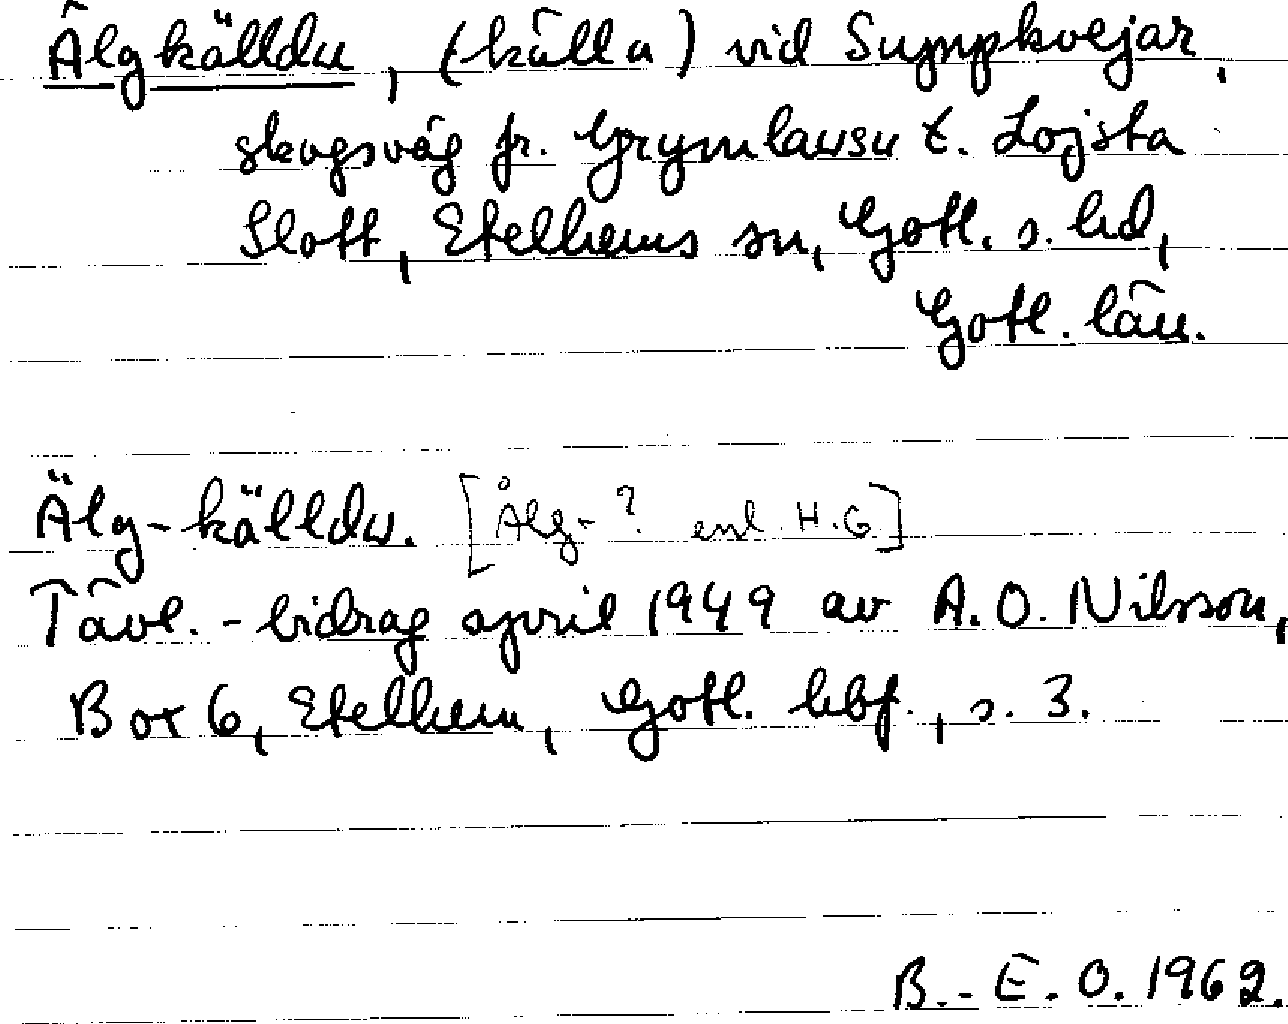 Älgkälldu, (källa) vid Sumpkvejar,
skogsväg fr. Grymlausu t. Lojsta
Slott, Etelhems sn, Gotl. s. hd,
Gotl. län.
Älg-källdu. [Ålg-? enl. H.G.]
Tävl.-bidrag april 1949 av A. O. Nilsson,
Box 6, Etelhem, Gotl. hbf., s. 3.
B.-E. O. 1962.